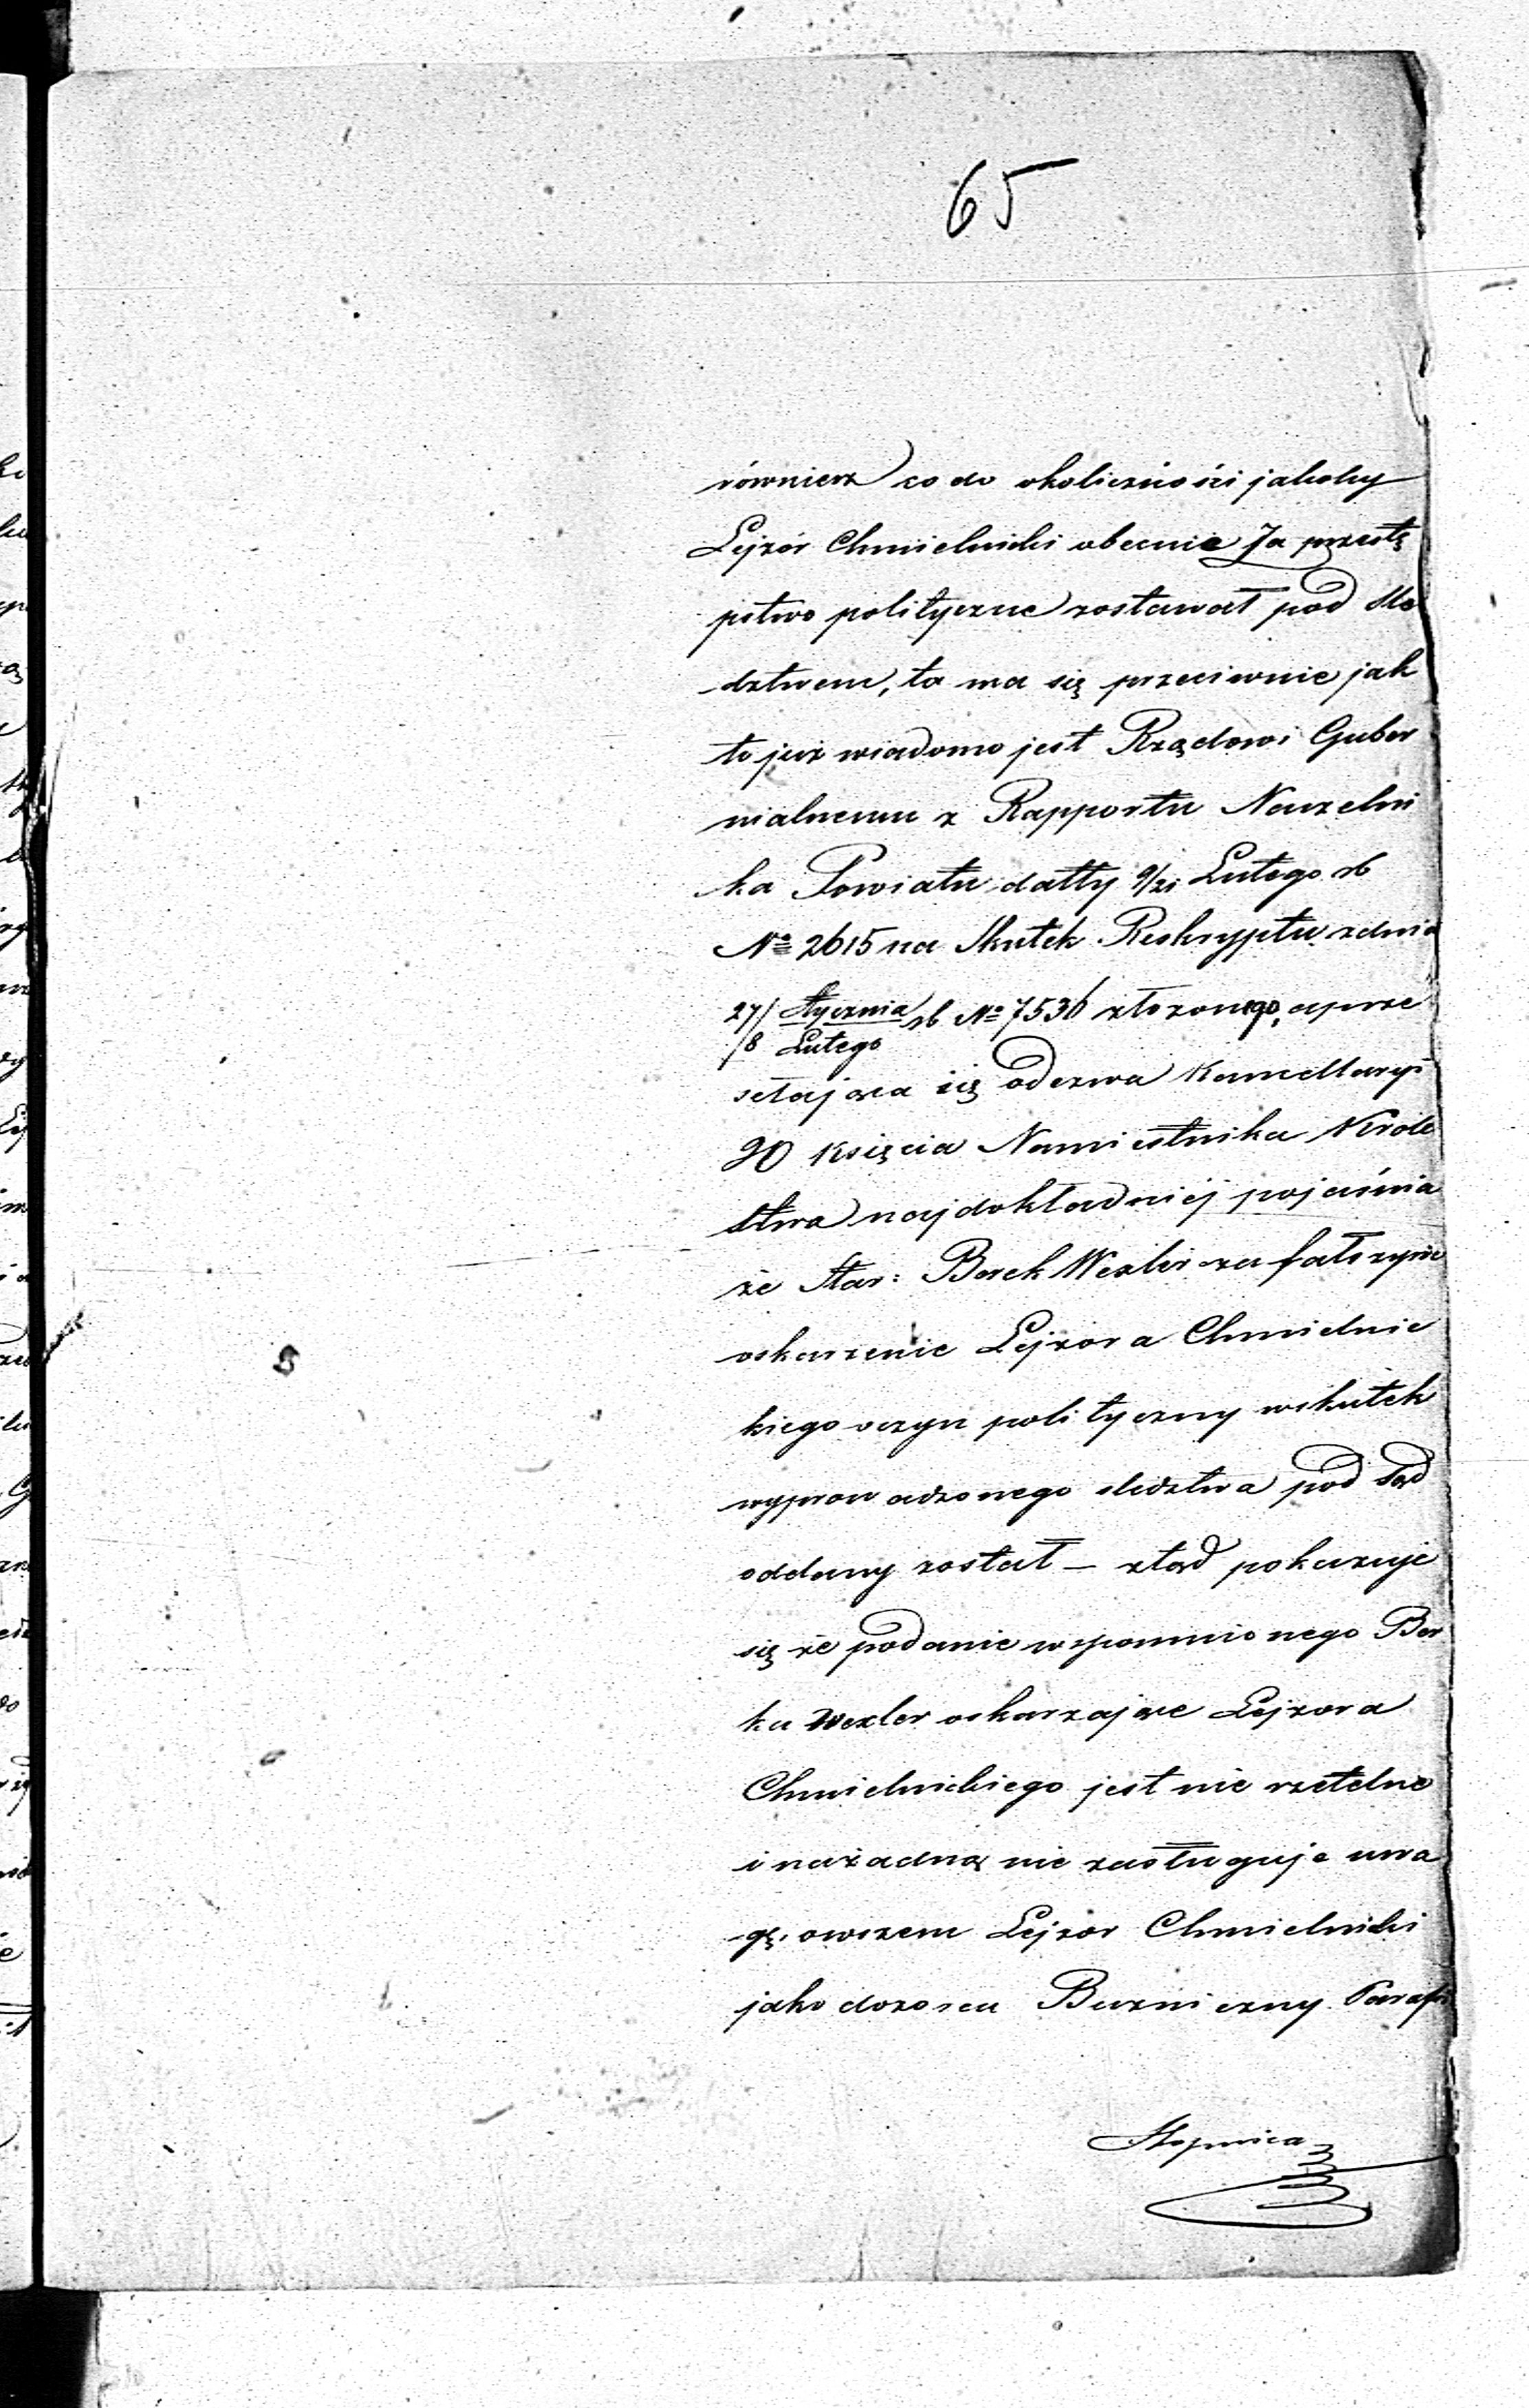 65
równierz co do okoliczności jakoby
Lejzór Chmielnicki obecnie Za przestę
pstwo polityczne zostawał pod Śle
dztwem, to ma się przeciwnie jak
to już wiadomo jest Rządowi Guber
nialnemu z Rapportu Naczelni
ka Powiatu datty 9/21 Lutego rb
No 2615 na Skutek Reskryptu zdnia
27/8 Stycznia/Lutego rb No 7536 złożonego, a prze
słająca się odezwa Kancellaryi
JO Księcia Namiestnika Króle
stwa najdokładniéj pojaśnia
że Star: Berek Wexler za fałszywe
oskarzenie Lejzora Chmielnic
kiego oczyn polityczny wskutek
wyprowadzonego sledztwa pod Sąd
oddany został — ztąd pokazuje
się że podanie wspomnionego Ber
ka Wexler oskarzające Lejzora
Chmielnickiego jest nie rzetelne
i nażadną nie zasługuje uwa
gę, owszem Lejzor Chmielnicki
jako dozorca Bużniczny Parafi
Stopnica